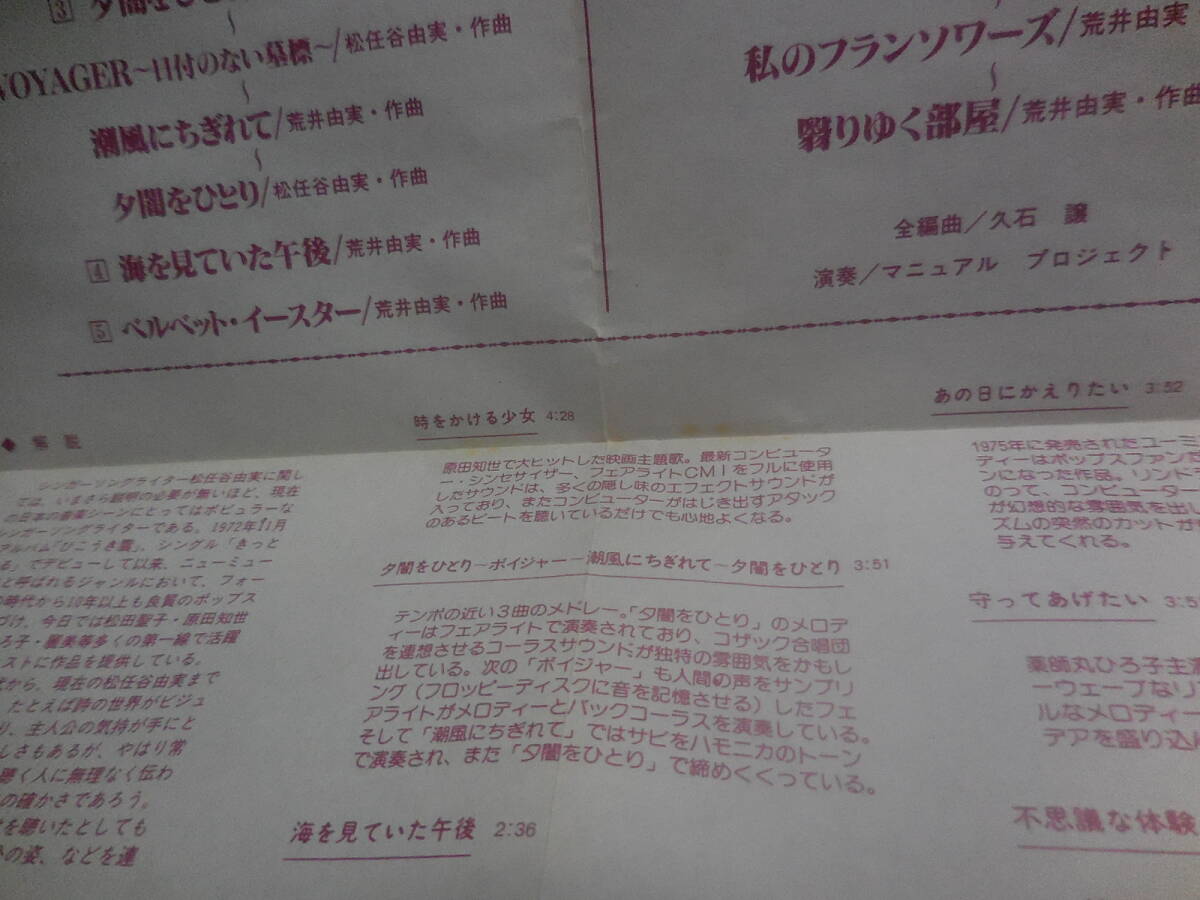 3 夕闇をひと
〜
VOYAGER〜日付のない墓標〜/松任谷由実・作曲
〜
潮風にちぎれて/荒井由実・作曲
〜
夕闇をひとり/松任谷由実・作曲
4 海を見ていた午後/荒井由実・作曲
5 ベルベット・イースター/荒井由実・作曲
私のフランソワーズ/荒井由実
〜
翳りゆく部屋/荒井由実・作曲
全編曲/久石 譲
演奏/マニュアル プロジェクト
◆ 解説
シンガーソングライター松任谷由実に関し
ては、いまさら説明の必要が無いほど、現在
の日本の音楽シーンにとってはポピュラーな
シンガーソングライターである。1972年11月
アルバム「ひこうき雲」、シングル「きっと
る」でデビューして以来、ニューミュー
と呼ばれるジャンルにおいて、フォー
の時代から10年以上も良質のポップス
づけ、今日では松田聖子・原田知世
ろ子・麗美等多くの第一線で活躍
ストに作品を提供している。
代から、現在の松任谷由実まで
、たとえば詩の世界がビジュ
り、主人公の気持が手にと
しさもあるが、やはり常
聴く人に無理なく伝わ
の確かさであろう。
を聴いたとしても
の姿、などを連
時をかける少女 4:28
原田知世で大ヒットした映画主題歌。最新コンピュータ
ー・シンセサイザー、フェアライトCMIをフルに使用
したサウンドは、多くの隠し味のエフェクトサウンドが
入っており、またコンピューターがはじき出すアタック
のあるビートを聴いているだけでも心地よくなる。
夕闇をひとり〜ボイジャー〜潮風にちぎれて〜夕闇をひとり 3:51
テンポの近い3曲のメドレー。「夕闇をひとり」のメロデ
ィーはフェアライトで演奏されており、コザック合唱団
を連想させるコーラスサウンドが独特の雰囲気をかもし
出している。次の「ボイジャー」も人間の声をサンプリ
ング（フロッピーディスクに音を記憶させる）したフェ
アライトがメロディーとバックコーラスを演奏している。
そして「潮風にちぎれて」ではサビをハモニカのトーン
で演奏され、また「夕闇をひとり」で締めくくっている。
海を見ていた午後 2:36
あの日にかえりたい 3:52
1975年に発売されたユーミ
ディーはポップスファンだ
ンになった作品。リンド
のって、コンピューター
が幻想的な雰囲気を出し
ズムの突然のカットが
与えてくれる。
守ってあげたい 3:5
薬師丸ひろ子主演
ーウェーブなリ
ルなメロディー
デアを盛り込ん
不思議な体験